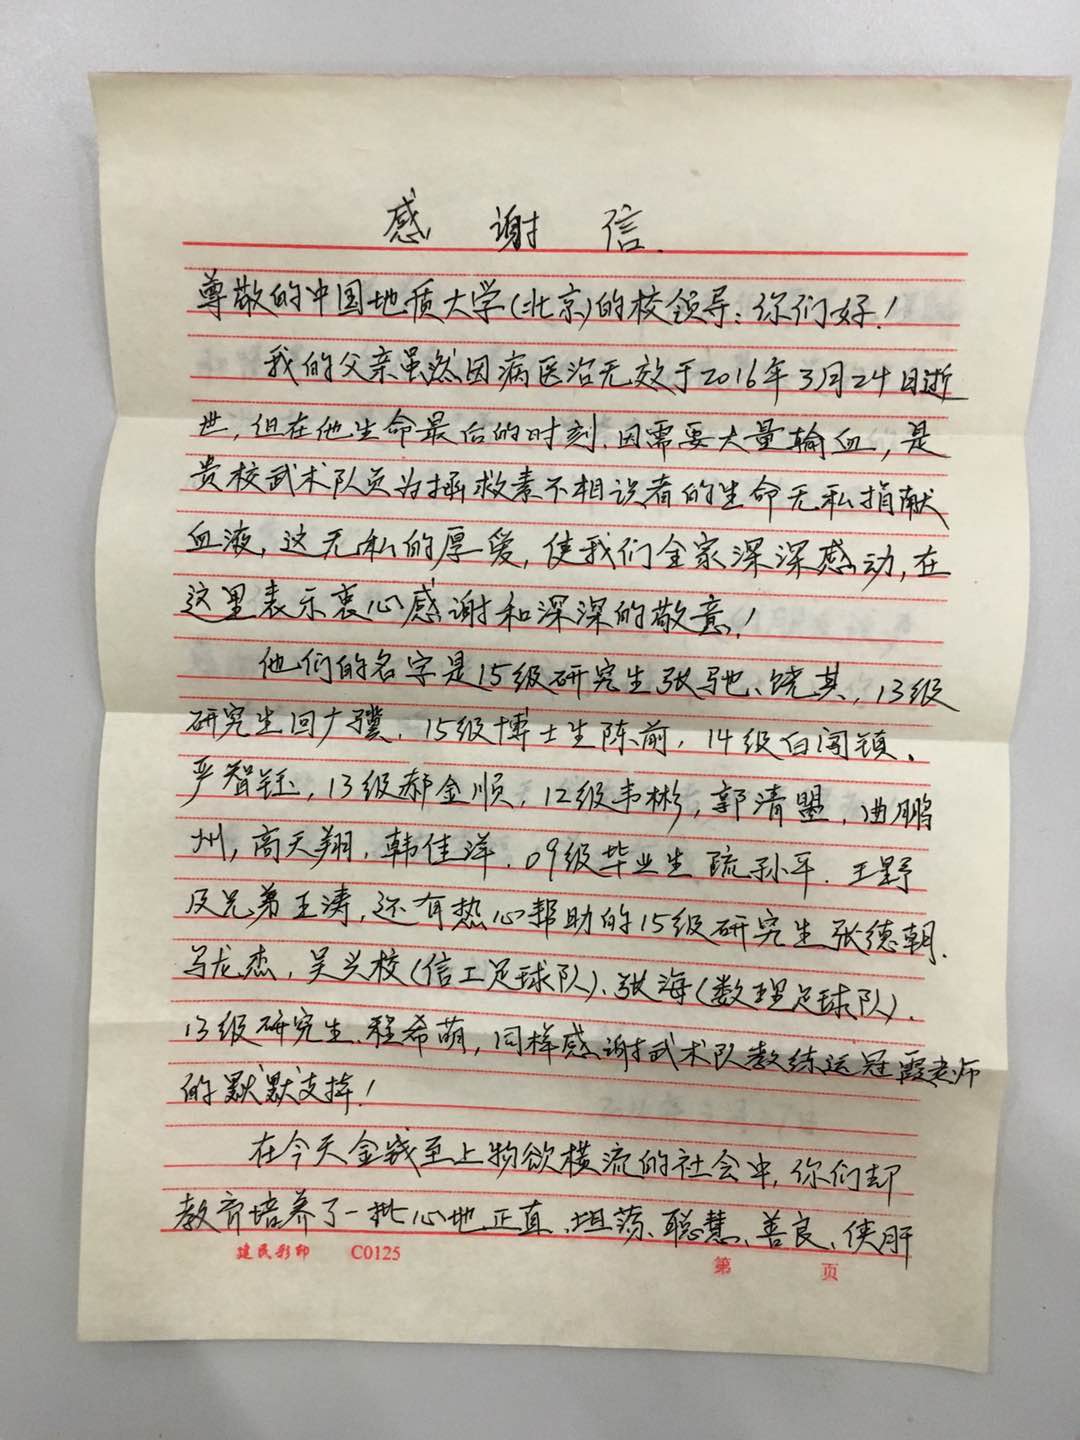 感谢信.
尊敬的中国地质大学(北京)的校领导:你们好!
我的父亲虽然因病医治无效于2016年3月24日逝
世,但在他生命最后的时刻.因需要大量输血,是
贵校武术队员为拯救素不相识者的生命无私捐献
血液,这无私的厚爱,使我们全家深深感动,在
这里表示衷心感谢和深深的敬意!
他们的名字是15级研究生张驰、饶其,13级
研究生回广骥.15级博士生陈前,14级白闯镇、
严智钰,13级郝金顺,12级韦彬,郭清盟,曲鹏
州,高天翔,韩佳洋.09级毕业生疏孙平.王野
及兄弟王涛,还有热心帮助的15级研究生张德朝.
马龙杰,吴兴校(信工足球队)、张海(数理足球队).
13级研究生.程希萌,同样感谢武术队教练运冠霞老师
的默默支持!
在今天金钱至上物欲横流的社会中,你们却
教育培养了一批心地正直、坦荡、聪慧、善良、侠肝
建民彩印 C0125 第 页